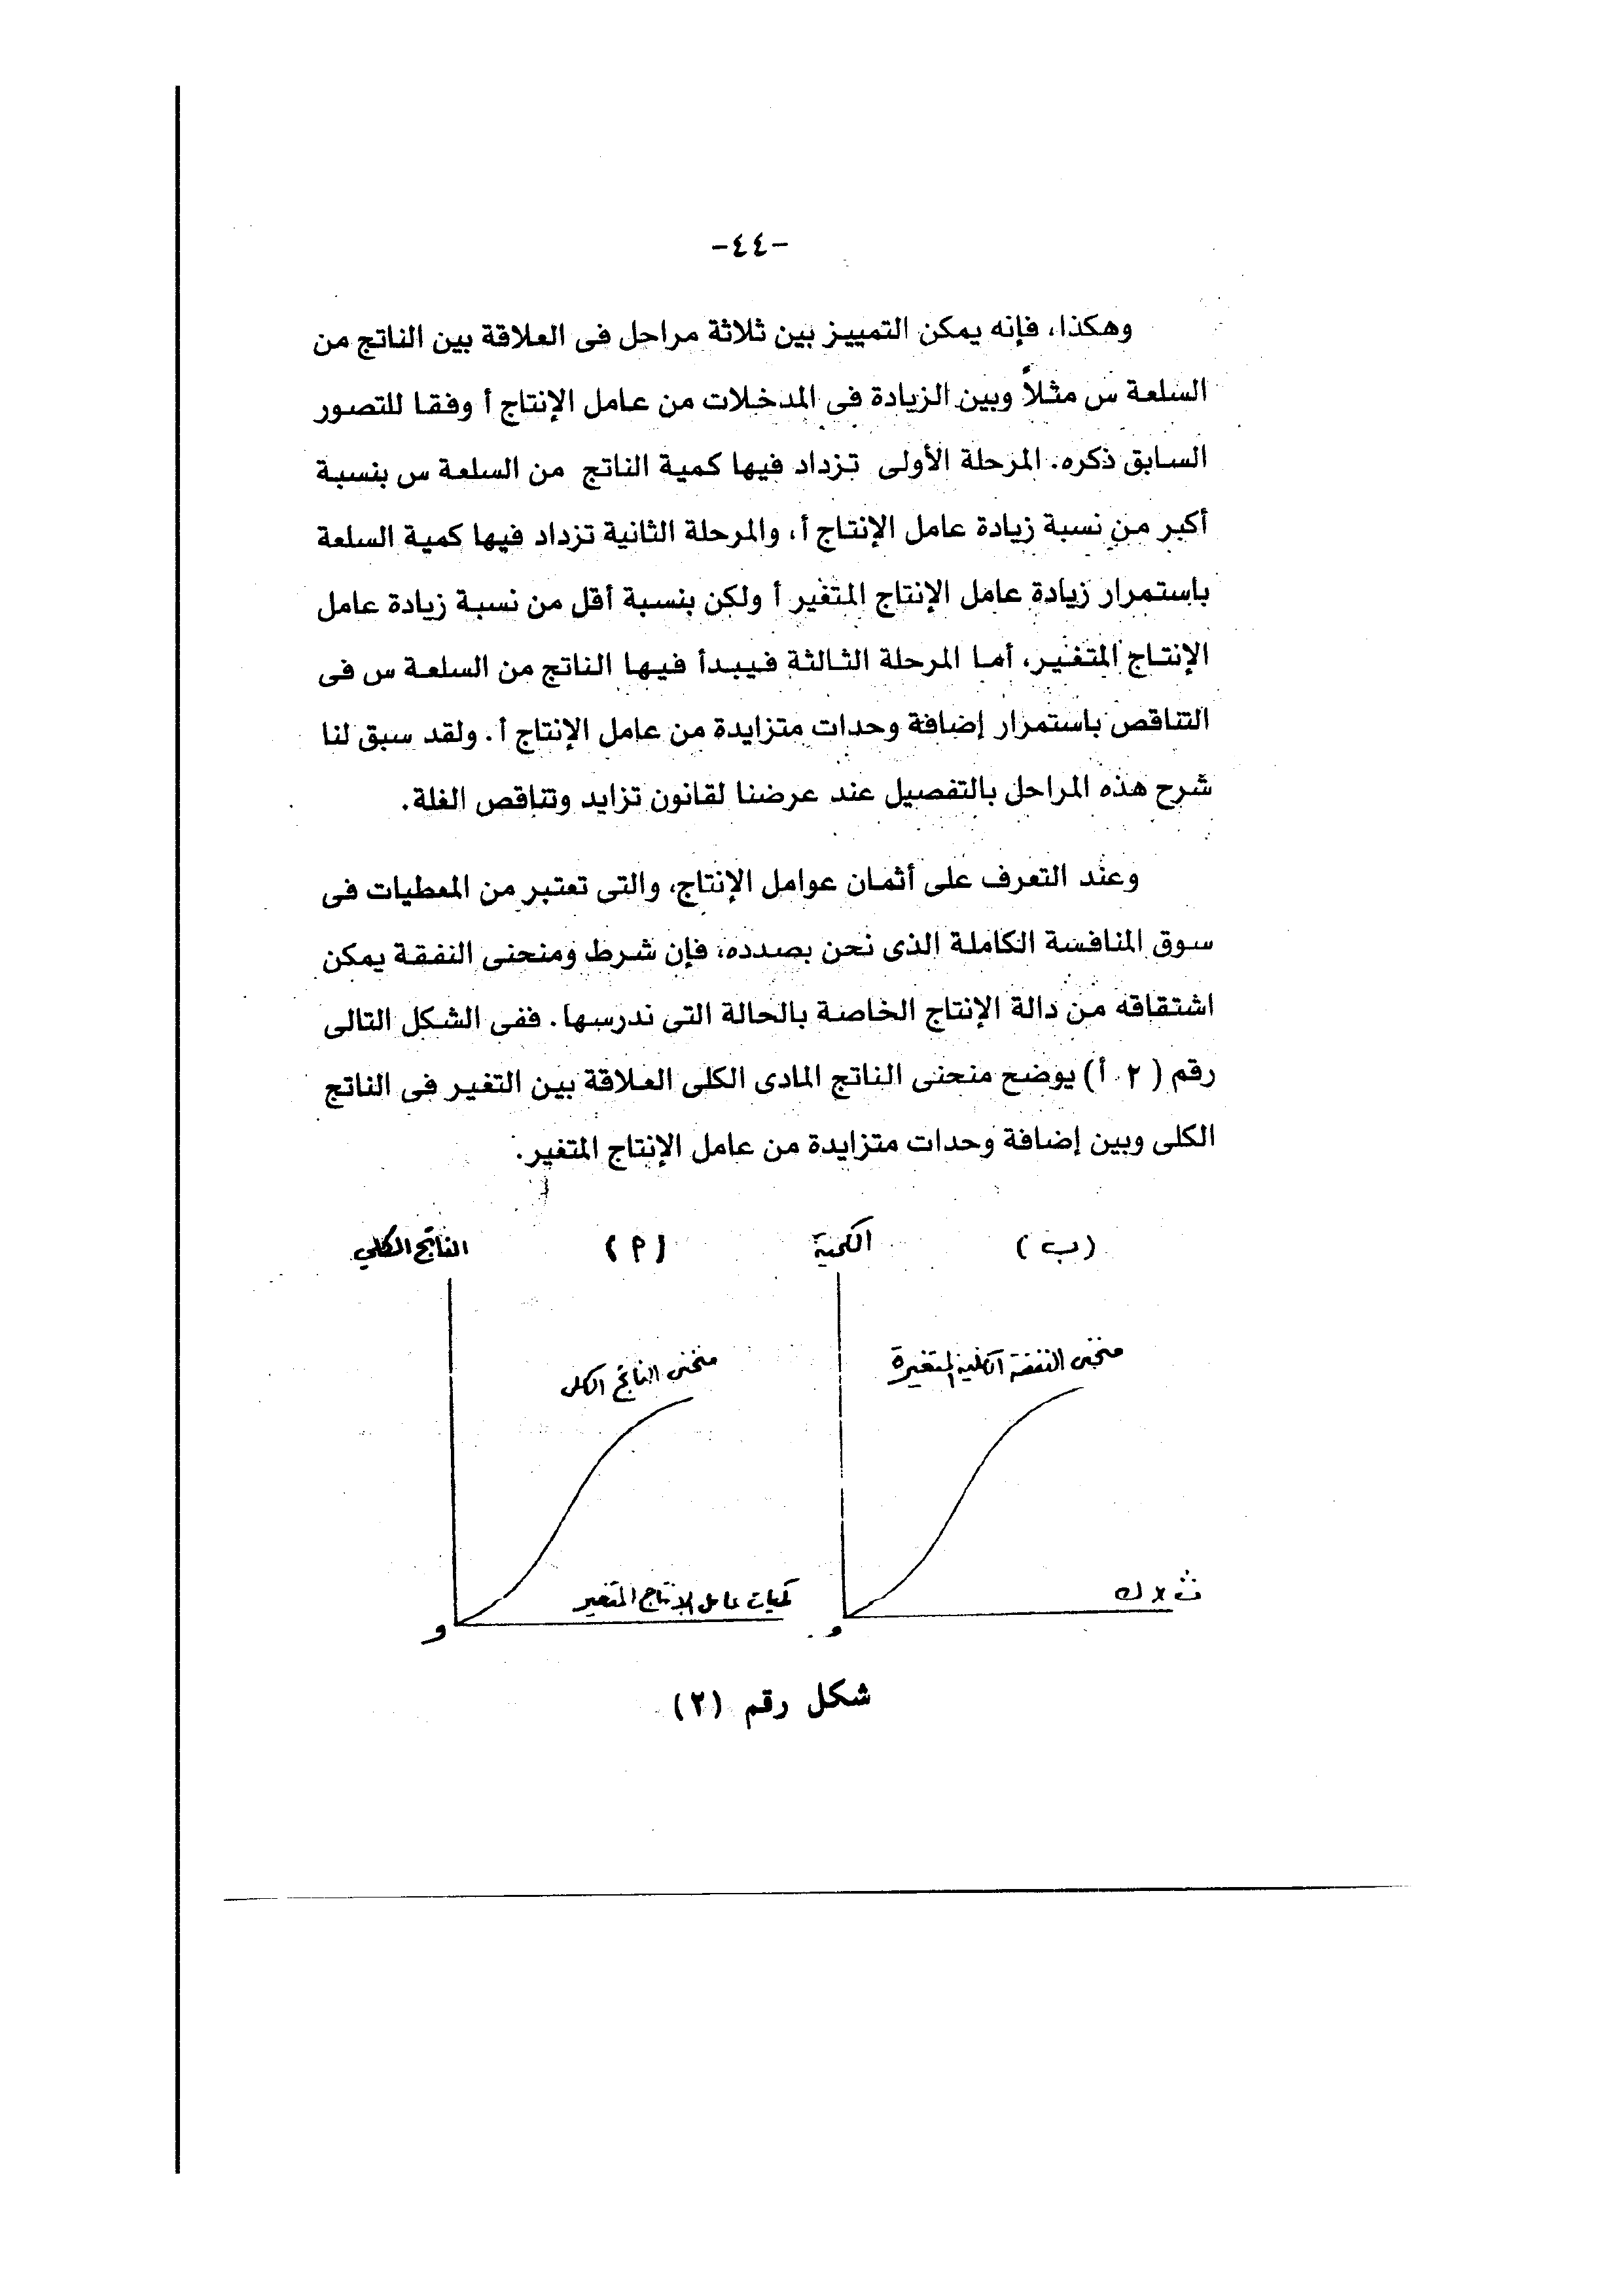 -٤٤-
وهكذا، فإنه يمكن التمييز بين ثلاثة مراحل فى العلاقة بين الناتج من
السلعة س مثلاً وبين الزيادة فى المدخلات من عامل الإنتاج أ وفقا للتصور
السابق ذكره. المرحلة الأولى تزداد فيها كمية الناتج من السلعة س بنسبة
أكبر من نسبة زيادة عامل الإنتاج أ، والمرحلة الثانية تزداد فيها كمية السلعة
باستمرار زيادة عامل الإنتاج المتغير أ ولكن بنسبة أقل من نسبة زيادة عامل
الإنتاج المتغير، أما المرحلة الثالثة فيبدأ فيها الناتج من السلعة س فى
التناقص باستمرار إضافة وحدات متزايدة من عامل الإنتاج أ. ولقد سبق لنا
شرح هذه المراحل بالتفصيل عند عرضنا لقانون تزايد وتناقص الغلة.
وعند التعرف على أثمان عوامل الإنتاج، والتى تعتبر من المعطيات فى
سوق المنافسة الكاملة الذى نحن بصدده، فإن شرط ومنحنى النفقة يمكن
اشتقاقه من دالة الإنتاج الخاصة بالحالة التى ندرسها. ففى الشكل التالى
رقم (٢. أ) يوضح منحنى الناتج المادى الكلى العلاقة بين التغير فى الناتج
الكلى وبين إضافة وحدات متزايدة من عامل الإنتاج المتغير.
(ب) الكمية (أ) الناتج الكلي
منحنى النفقة الكلية المتغيرة
منحنى الناتج الكلى
ث × ك
كميات عامل الإنتاج المتغير
و و
شكل رقم (٢)